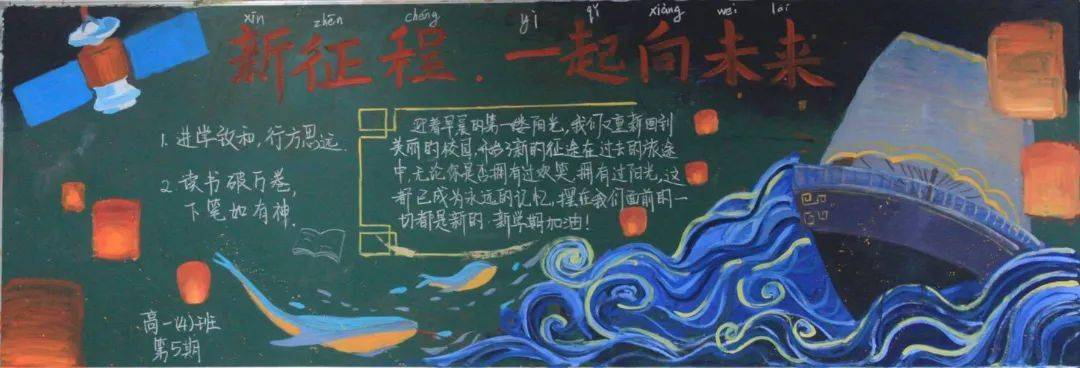 xīn zhēn chéng yì qǐ xiàng wei lai
新征程.一起向未来
1. 进学致和,行方思远.
2. 读书破万卷,
下笔如有神.
迎着早晨的第一缕阳光,我们又重新回到
美丽的校园,开始了新的征途在过去的旅途
中,无论你是否拥有过欢笑,拥有过阳光,这
都已成为永远的记忆,摆在我们面前的一
切都是新的.新学期加油!
高一(4)班
第5期